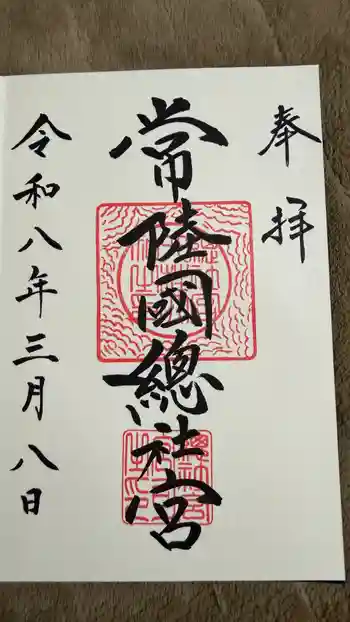 奉拝
常陸國總社宮
令和八年三月八日